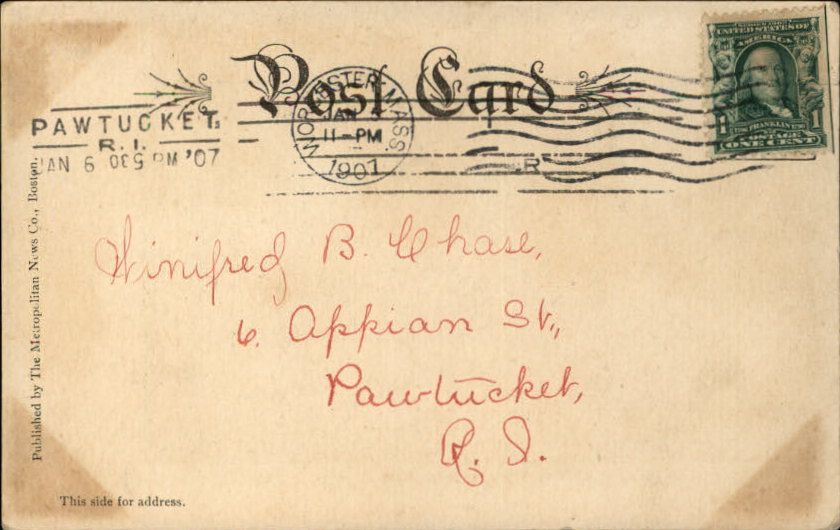 Post Card
WORCESTER, MASS.
JAN
11-PM
1907
PAWTUCKET,
R. I.
JAN 6 PM '07
R
UNITED STATES OF
AMERICA
1 1
FRANKLIN
POSTAGE
ONE CENT
Winifred B. Chase,
6. Appian St.,
Pawtucket,
R. I.
Published by The Metropolitan News Co., Boston.
This side for address.